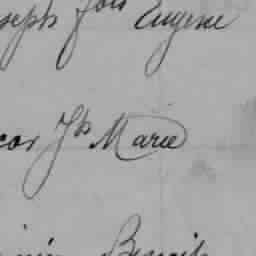 seph fois Eugene
cor Jh Marie
Benoit